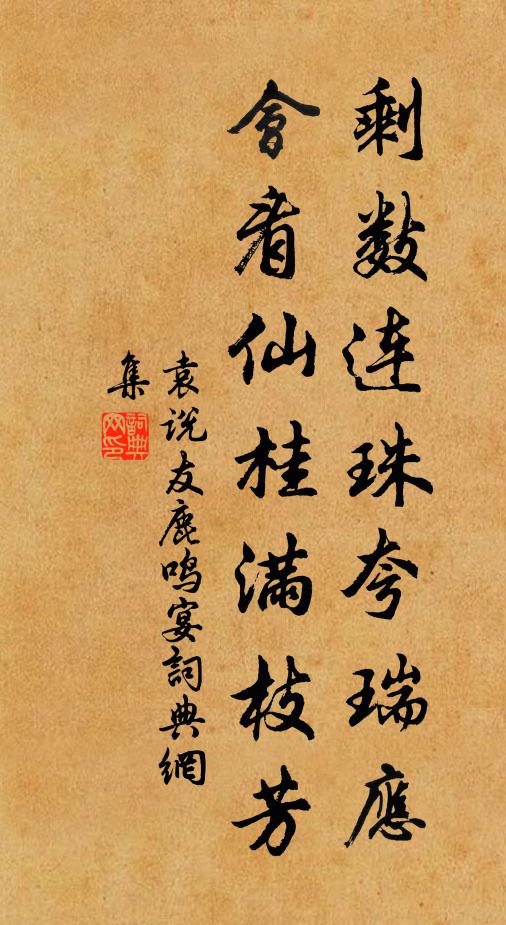 剩数连珠夸瑞應
會看仙桂满枝芳
袁说友鹿鸣宴詞典網
集
詞典
网印